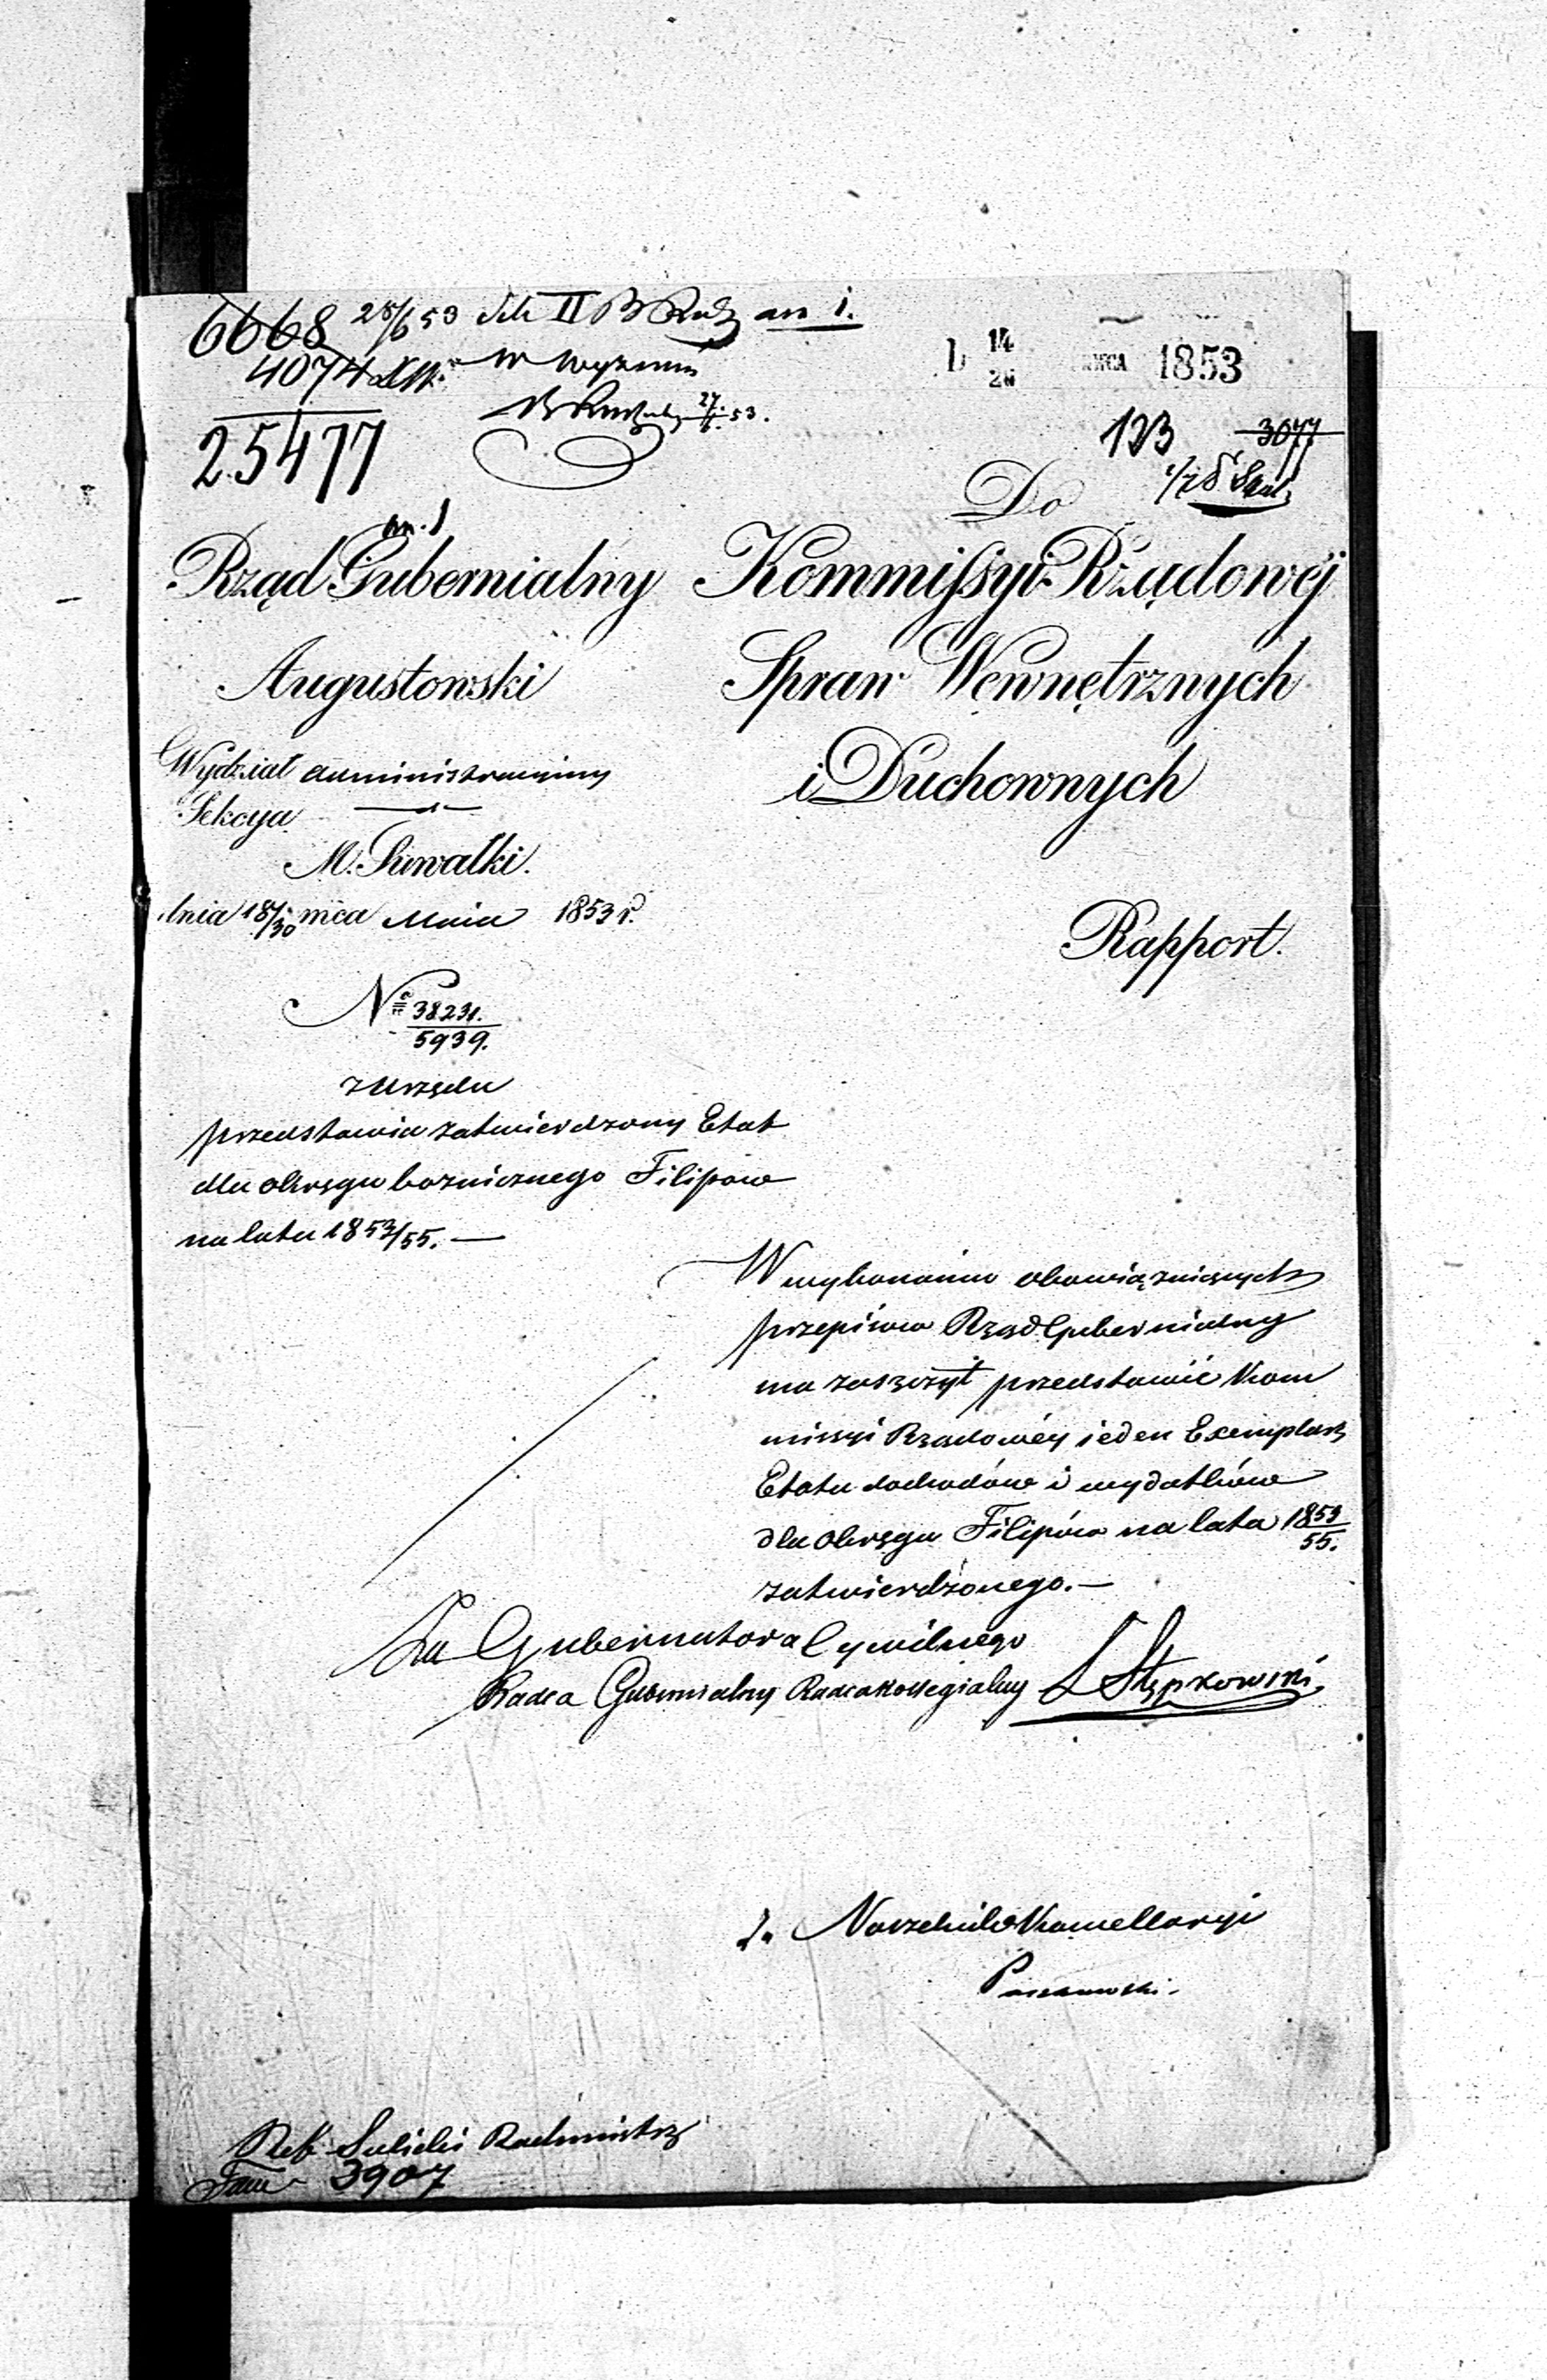 6668 25/6 53 II an 1.
4074
25477
14
26
1853
123 3077
an. 1
Rząd Gubernialny
Augustowski
Wydział Administracyiny
Sekcya
M. Suwałki.
dnia 18/30 mca Maia 1853 r.
Nº 38231.
5939.
z Urzędu
przedstawia zatwierdzony Etat
dla okręgu bożniczego Filipow
na lata 1853/55. —
Do
Kommissyi Rządowéj
Spraw Wewnętrznych
i Duchownych
Rapport.
W wykonaniu obowiązuiących
przepisow Rząd Gubernialny
ma zaszczyt przedstawić Kom
missyi Rządowéy ieden Exemplarz
Etatu dochodów i wydatków
dla Okręgu Filipów na lata 1853/55.
zatwierdzonego. —
Za Gubernatora Cywilnego
Radca Gubernialny Radca Kollegialny Stępkowski
Naczelnik Kancellaryi
Rachmistrz
3907